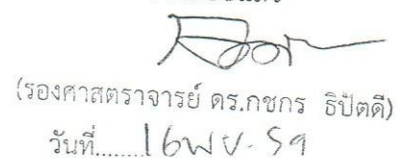 (รองศาสตราจารย์ ดร.กชกร ธิปัตดี)
วันที่........16 พ.ย. 59